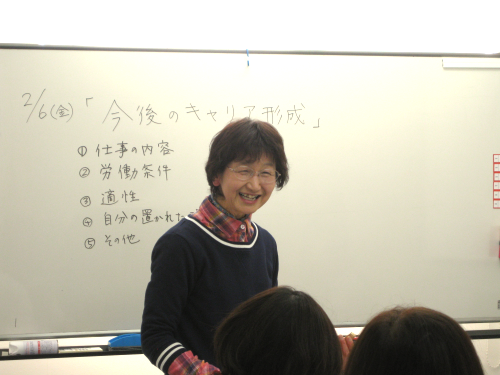 2/6(金)「今後のキャリア形成」
① 仕事の内容
② 労働条件
③ 適性
④ 自分の置かれた
⑤ その他